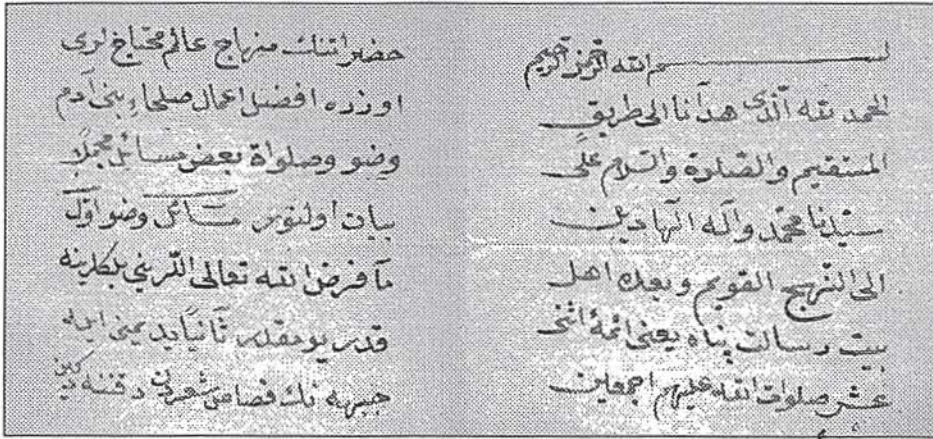 بسم الله الرحمن الرحيم
الحمد لله الذى هدانا الى طريق
المستقيم والصلوة والسلام على
سيدنا محمد واله الهادين
الى النهج القويم وبعده اهل
بيت رسالت پناه يعنى ائمهٔ اثنى
عشر صلوات الله عليهم اجمعين
حضراتنك منهاج عالم محتاج لرى
اوزره افضل اعمال صلحاء بنى آدم
وضو وصلواة بعض مسائل مجملا
بيان اولنور مسائل وضو اول
ما فرض الله تعالى اللرينى بلكلرينه
قدر يومقدر ثانيا يد يمنى ايله
جبهه نك قصاص شعردن دقننه